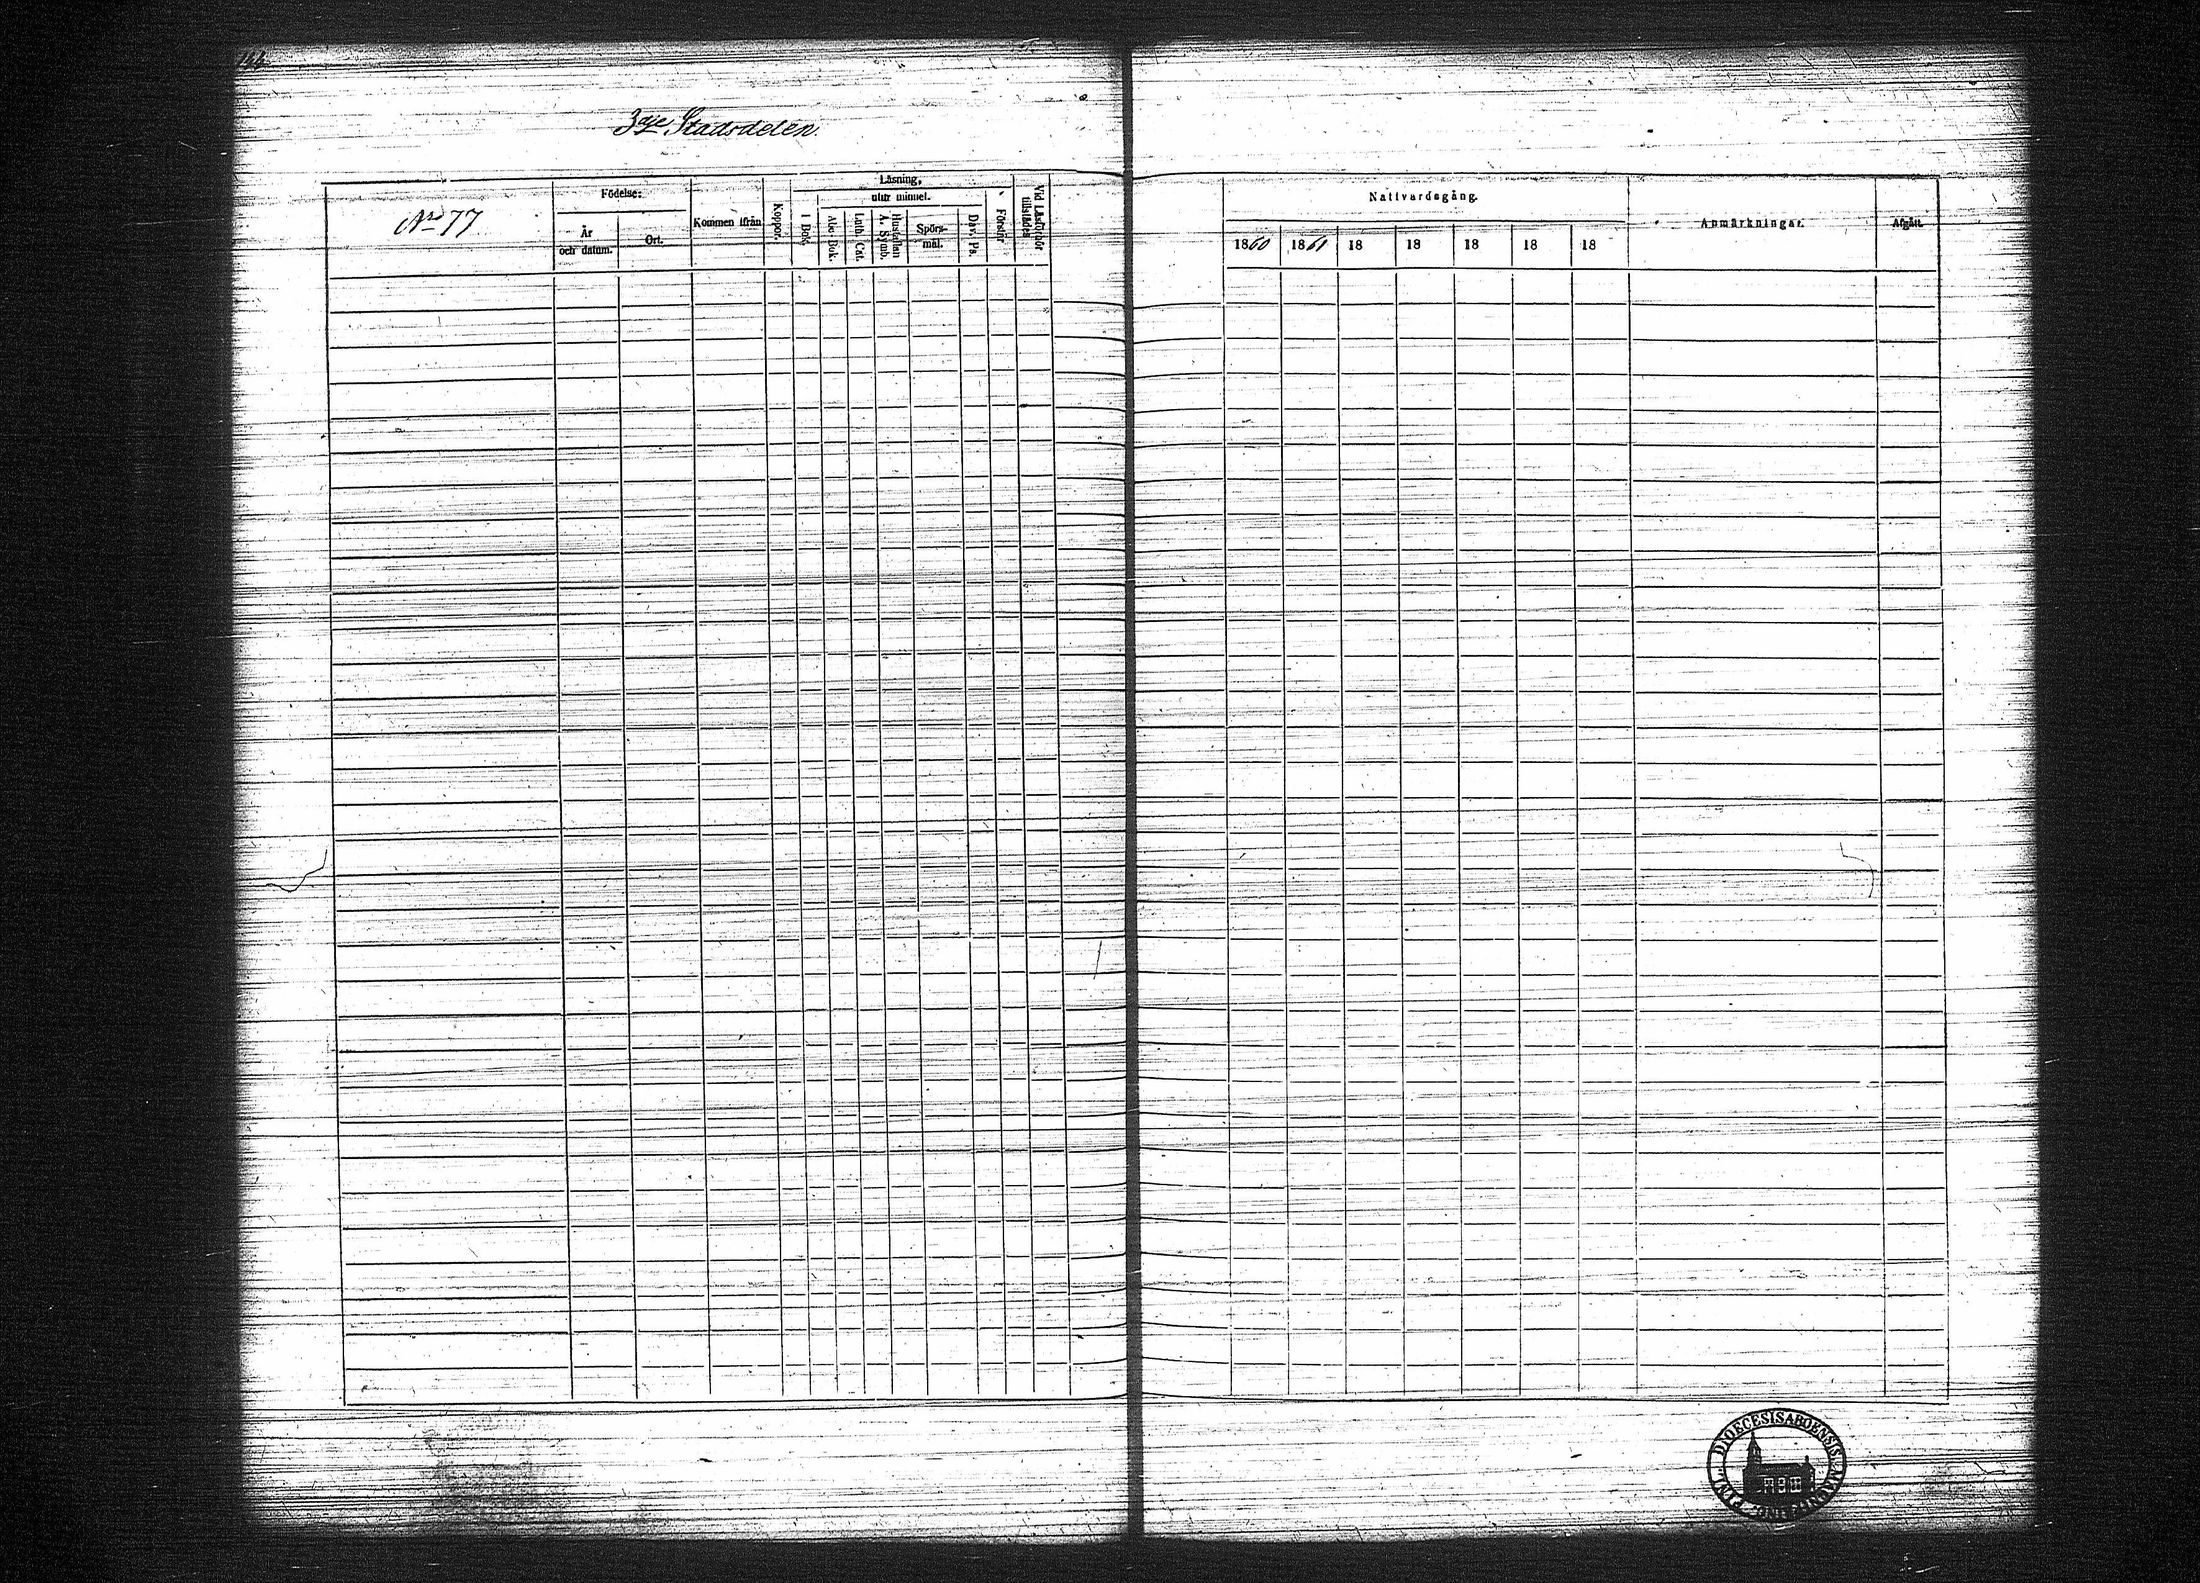 3dje Stadsdelen.
No 77
Födelse:
År
och datum.
Ort.
Kommen ifrån
Koppor.
Läsning,
utur minnet.
I Bok.
Abc Bok.
Luth. Cat.
Hustaflan
A. Symb.
Spörs-
mål.
Dav. Ps.
Förstår
Vid Läsförhör
tillstädes
Nattvardsgång.
1860
1861
18
18
18
18
18
Anmärkningar.
Afgått.
DIOECESIS ABOENSIS